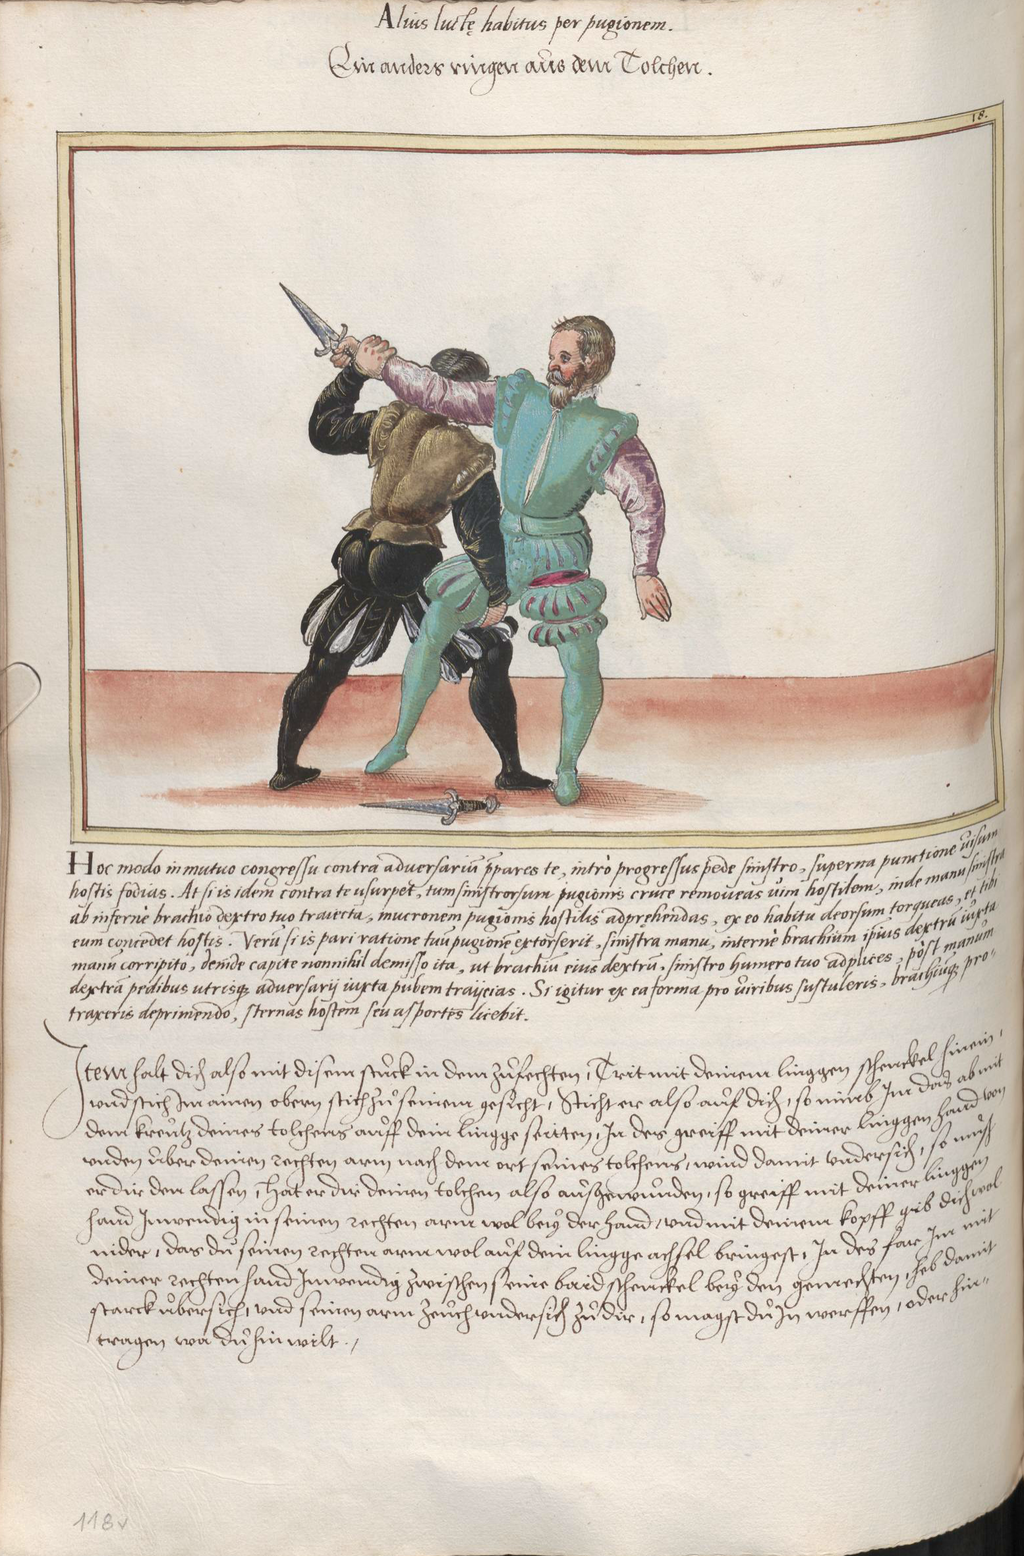 Alius luctę habitus per pugionem.
Ein anders ringen aus dem Tolchen.
18.
Hoc modo in mutuo congressu contra adversariũ p̃pares te, intrò progressus pede sinistro, superna punctione uisum
hostis fodias. At si is idem contra te usurpet, tum sinistrorsum pugionis cruce remoueas uim hostilem, inde manu sinistra
ab infernè brachio dextro tuo traiecta, mucronem pugionis hostilis adprehendas, ex eo habitu deorsum torqueas, et tibi
eum concedet hostis. Verũ si is pari ratione tuũ pugionẽ extorserit, sinistra manu, internè brachium ipius dextrũ iuxta
manũ corripito, deinde capite nonnihil demisso ita, ut brachiũ eius dextrũ, sinistro humero tuo adplices, pòst manum
dextrã pedibus utrisq; adversarij iuxta pubem traijcias. Si igitur ex ea forma pro uiribus sustuleris, brachiũq; pro-
traxeris deprimendo, sternas hostem seu asportes licebit.
Item halt dich also mit disem stuck in dem zufechten, Trit mit deinem linggen schenckel hinein,
vnd stich Im ainen obern stich zu seinem gesicht, Sticht er also auf dich, so nimb Im das ab mit
dem kreutz deines tolchens auff dein lingge seitten, In des greiff mit deiner linggen hand von
vnden über deinen rechten arm nach dem ort seines tolchens, wind damit vndersich, so mus
er dir den lassen, Hat er dir deinen tolchen also ausgewunden, so greiff mit deiner linggen
hand Inwendig in seinen rechten arm wol bey der hand, vnd mit deinem kopff gib dich wol
nider, das du seinen rechten arm wol auf dein lingge achsel bringest, In des far Im mit
deiner rechten hand Inwendig zwischen seine baid schenckel bey den gemechten, heb damit
starck übersich, vnd seinen arm zeuch vndersich zu dir, so magst du In werffen, oder hin-
tragen wa du hin wilt.
118v